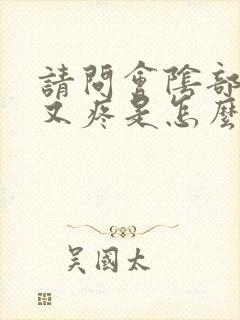 請問會陰部
又疼是怎麼
吳國太